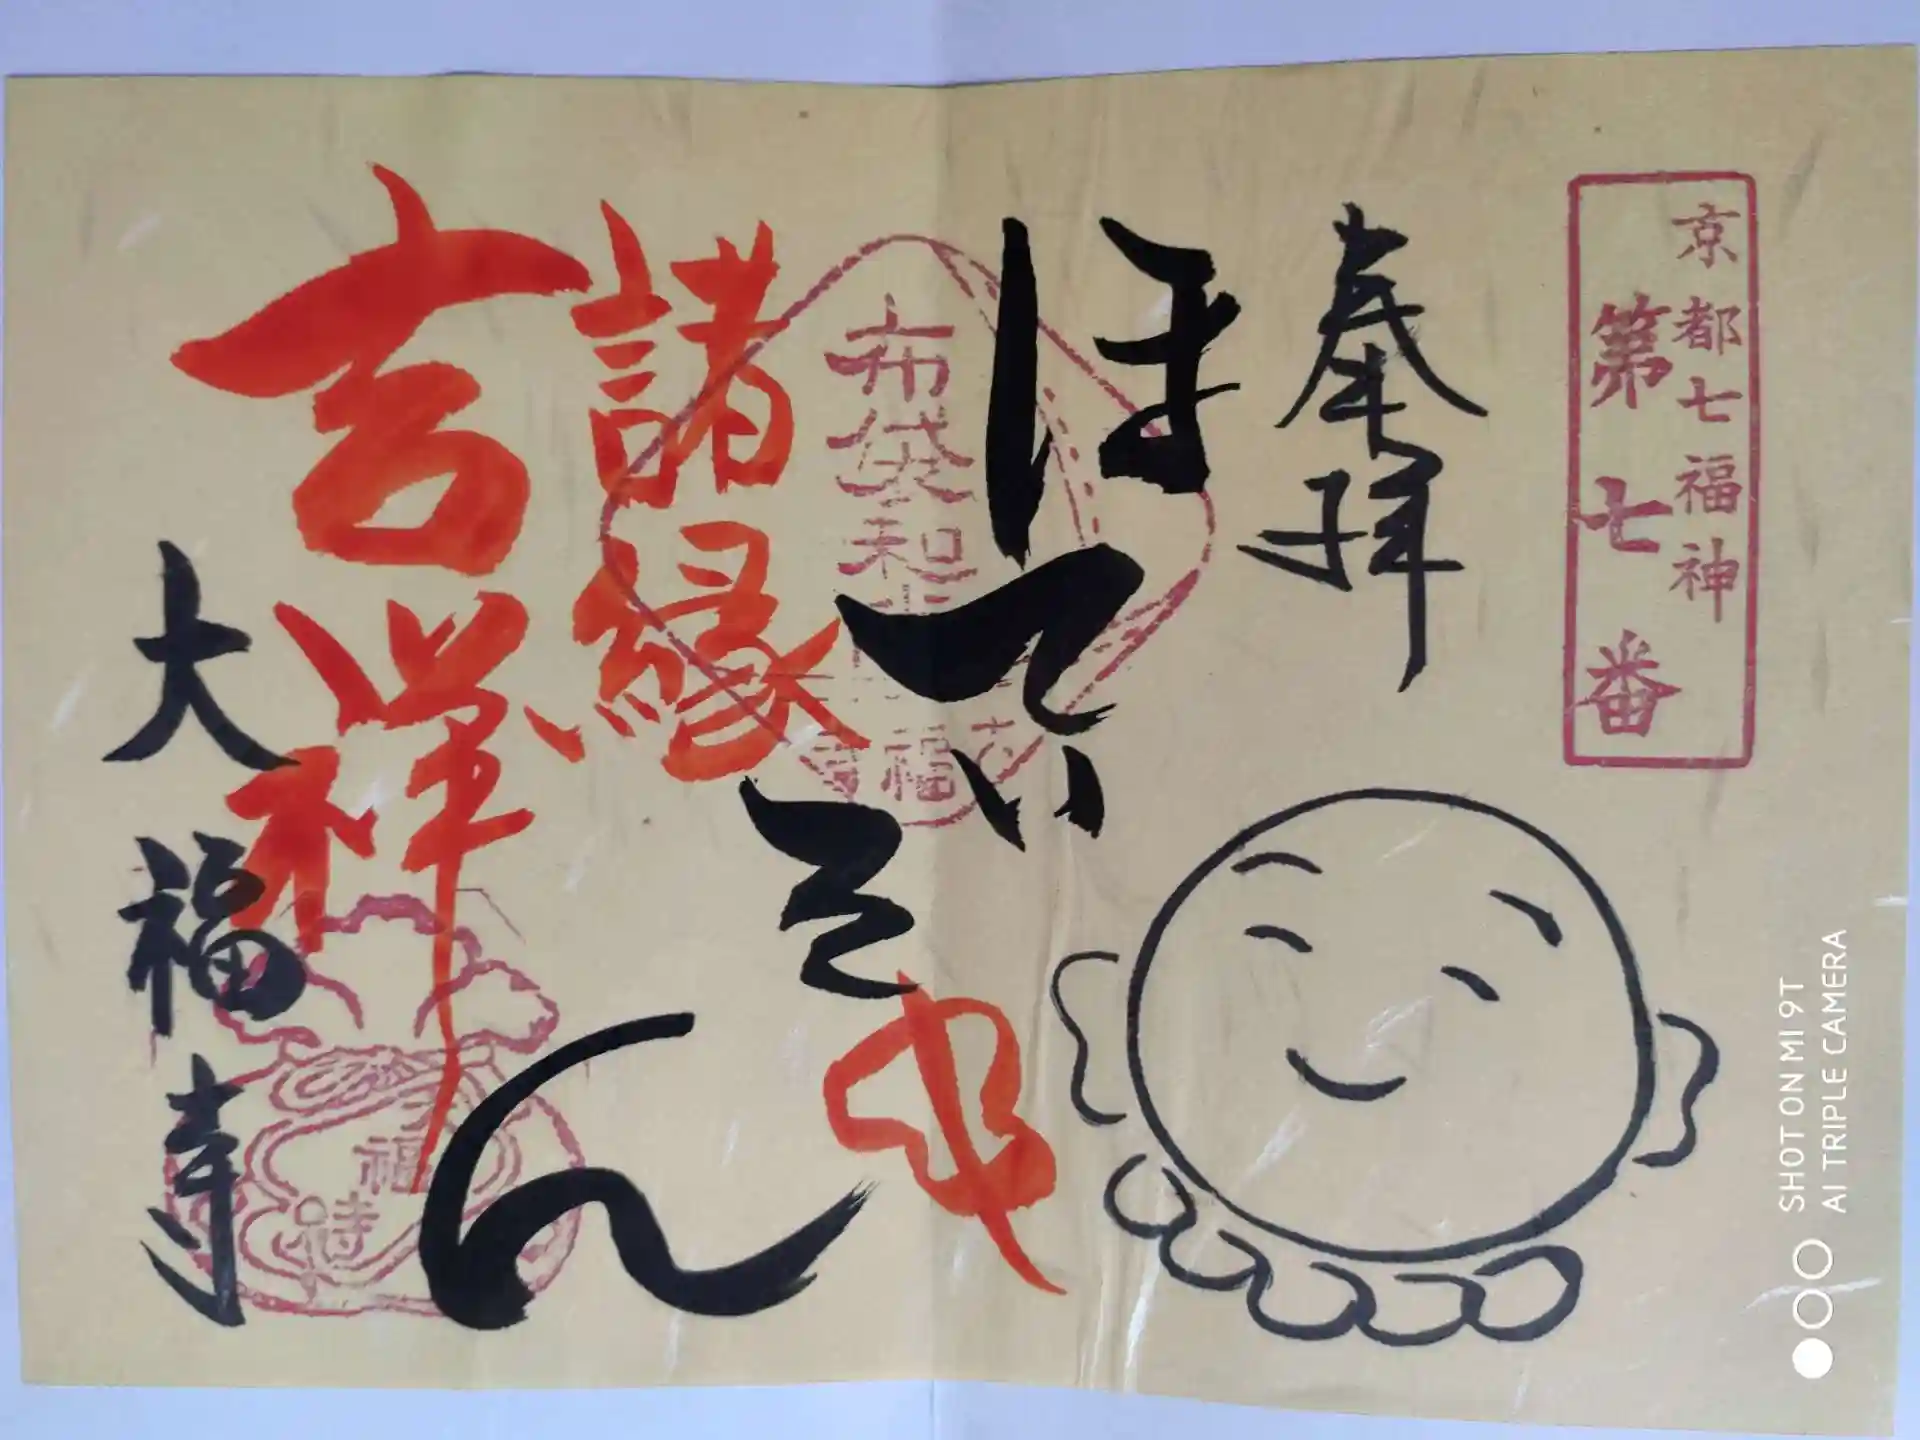 京都七福神
第七番
奉拝
ほていそん
布袋和
大福寺
諸縁
吉祥
大福寺
SHOT ON MI 9T
AI TRIPLE CAMERA